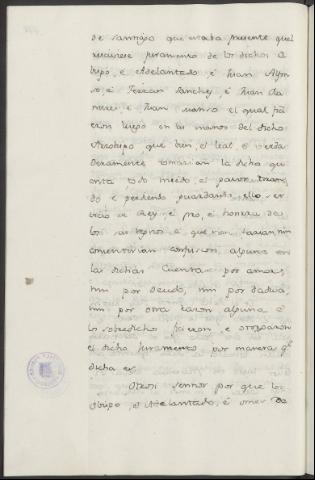 de santiago que estaba presente qual
reciviese juramento de los dichos O
bispo, e Adelantado, é Juan Alfon
so, é Ferran Sanchez, é Juan
é Juan el qual
ciron luego en las manos del dicho
Arzobispo que bien, é leal é verda
deramente tomarian la dicha qu
enta todo miedo, é pavor, tiran
do é perdiendo guardando ello ser
vicio de Rey, é pro, é honrra de
los sus regnos é que non farian, nin
consentirian confusion alguna en
las dichas Cuentas por amor,
nin por deudo, nin por dadiva,
nin por otra razon alguna é
los sobredichos ficieron, e otorgaron
el dicho juramento por manera q.
dicha es.
Otrosi sennor por que los
Obispo, é Adelantado, é omes de